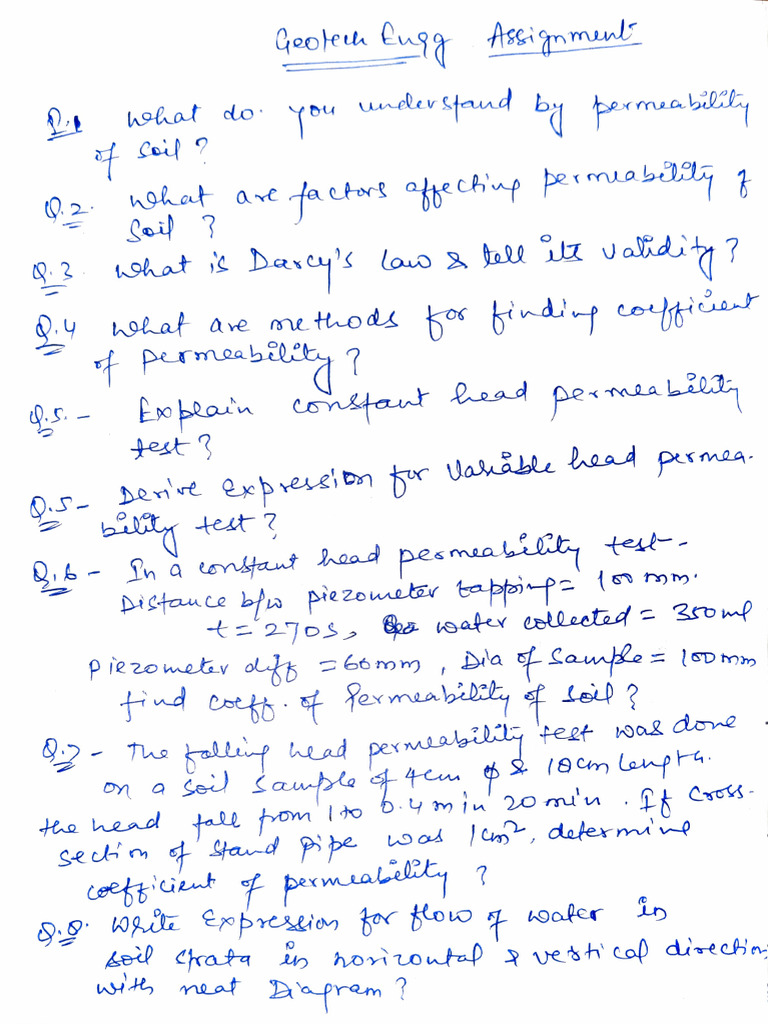 Geotech Engg Assignment
Q.1 What do you understand by permeability
of soil?
Q.2. What are factors affecting permeability of
Soil ?
Q.3. What is Darcy's Law & tell its validity?
Q.4 What are methods for finding coefficient
of permeability?
Q.5. - Explain constant head permeability
test?
Q.5 - Derive Expression for Variable head permea-
bility test?
Q.6 - In a constant head permeability test-
Distance b/w piezometer tapping = 100 mm.
t = 270s, water collected = 350 ml
Piezometer diff = 60mm, Dia of Sample = 100mm
find coeff. of Permeability of Soil?
Q.7 - The falling head permeability test was done
on a soil sample of 4cm ϕ & 18cm length.
the head fall from 1 to 0.4 m in 20 min. If cross-
section of stand pipe was 1cm², determine
coefficient of permeability ?
Q.8. Write Expression for flow of water in
soil strata in horizontal & vertical direction
with neat Diagram?